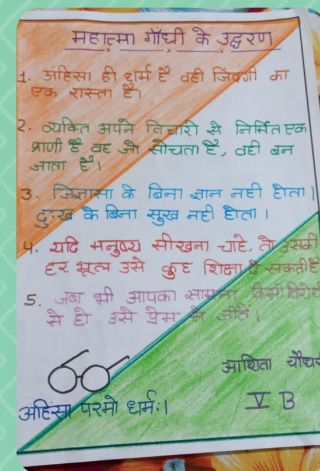 महात्मा गाँधी के उद्धरण
1. अंहिसा ही धर्म है वही जिंदगी का
एक रास्ता है।
2. व्यक्ति अपने विचारो से निर्मित एक
प्राणी है वह जो सोचता है, वही बन
जाता है।
3. जिज्ञासा के बिना ज्ञान नही होता।
दुःख के बिना सुख नही होता।
4. यदि मनुष्य सीखना चाहे, तो उसकी
हर भूल उसे कुछ शिक्षा दे सकती है
5. जब भी आपका सामना किसी विरोधी
से हो उसे प्रेम से जीते।
आशिता चौधर
V B
अहिंसा परमो धर्मः।